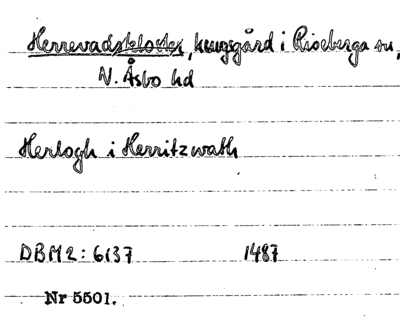 Herrevadskloster, kungsgård i Riseberga sn,
N. Åsbo hd
Herlogh i Herritzwath
DBM2: 6137 1487
Nr 5501.